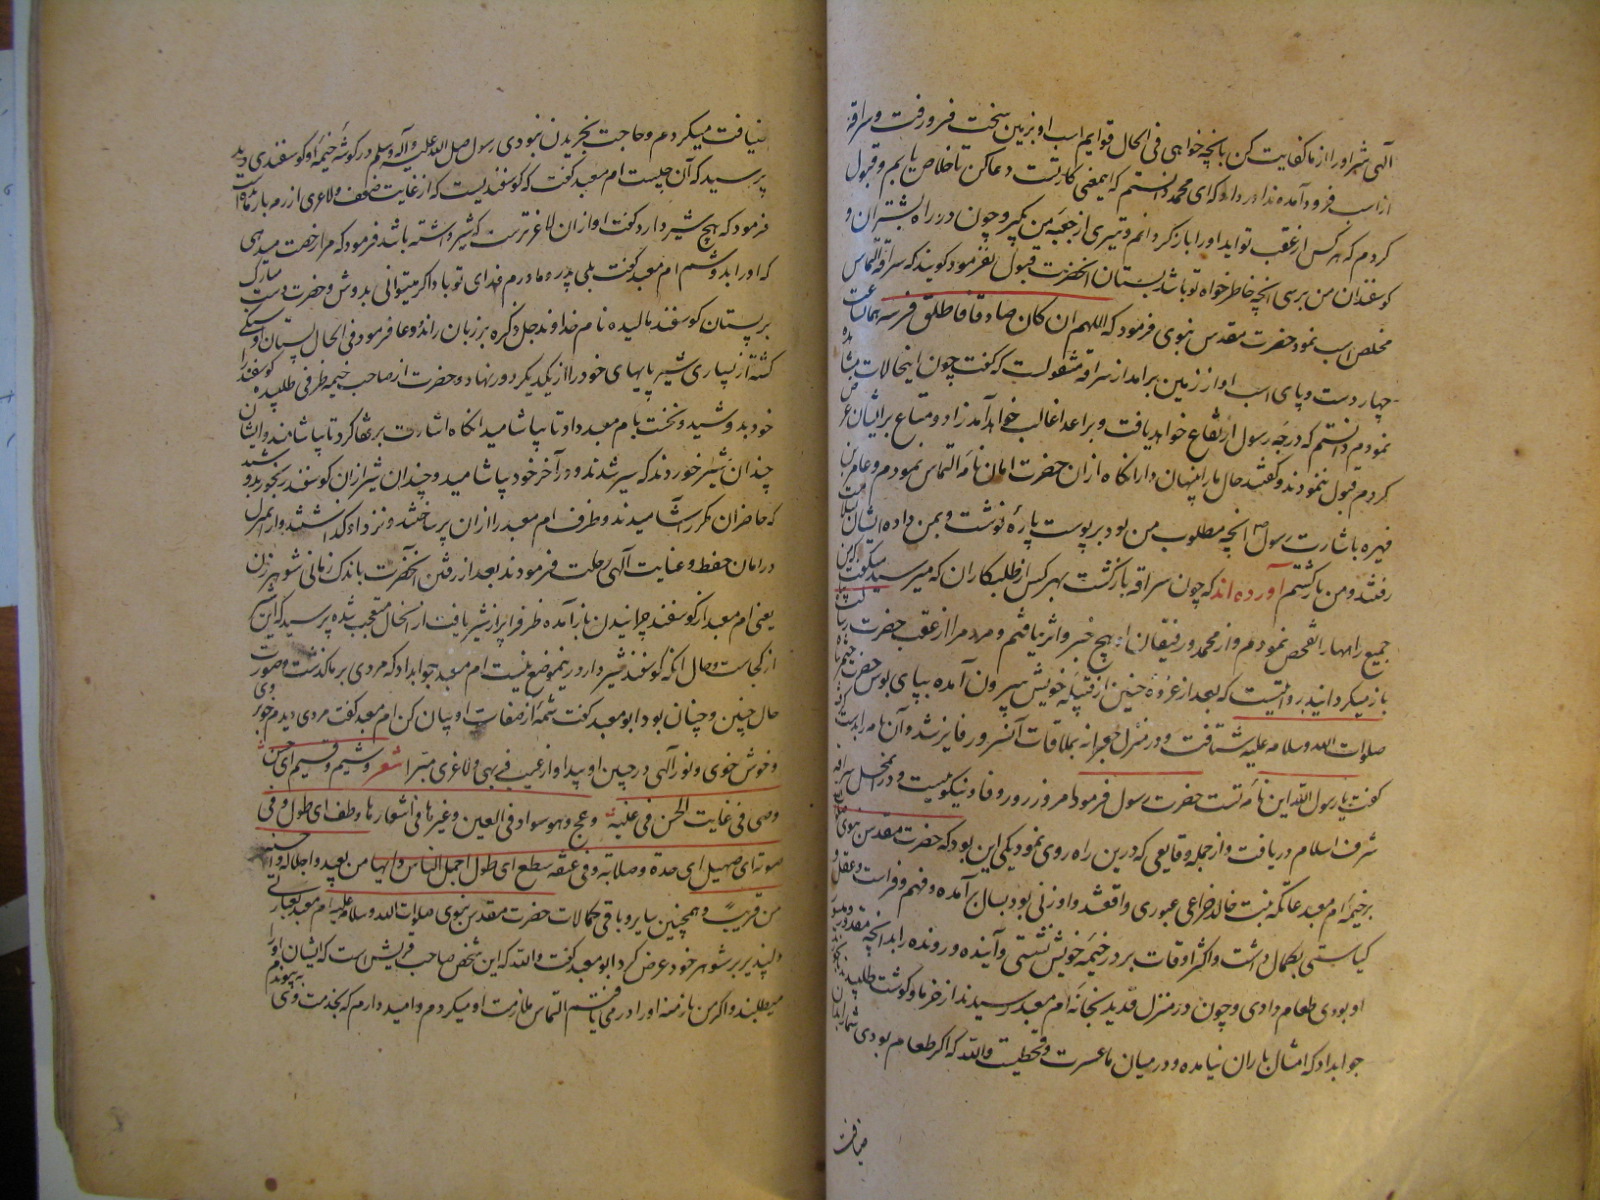 آلهی شر او را از ما کفایت کن بانچه خواهی فی الحال قوایم اسب او بزمین سخت فرو رفت و سراقه
از اسب فرود آمده ندا در داد که ای محمد دانستم که اینمعنی کار تست دعا کن تا خلاص یابم و قبول
کردم که هر کس از عقب تو اید او را باز کردانم و تیری از جعبه من بگیر و چون در راه بشتران و
کوسفندان من برسی انچه خاطر خواه تو باشد بستان انحضرت قبول نفرمود کویند که سراقه التماس
مخلص اسب نمود حضرت مقدس نبوی فرمود که اللهم ان کان صادقا فاطلق فرسه همانساعت
چهار دست و پای اسب او از زمین برامد از سراقه منقولست که گفت چون اینحالات مشاهده
نمودم دانستم که درجه رسول ارتفاع خواهد یافت و بر اعدا غالب خواهد آمد زاد و متاع بر ایشان عرض
کردم قبول ننمودند و کفتند حال ما را پنهان دار انکاه از ان حضرت امان نامه التماس نمودم و عامر بن
فهیره باشارت رسول انچه مطلوب من بود بر پوست پاره نوشت و بمن داده ایشان
رفتند و من بازکشتم آورده اند که چون سراقه بازکشت بهر کس از طلبکاران که میرسید میکفت که من
جمیع راهها را تفحص نمودم و از محمد و رفیقان او هیچ خبر و اثر نیافتم و مردم را از عقب حضرت
باز میکردانید روایتست که بعد از غزوه حنین از قبیله خویش بیرون آمده بپای بوس حضرت
صلوات الله و سلامه علیه شتافت و در منزل جعرانه بملاقات آنسرور فایز شد و آن نامه را بدست
کفت یا رسول الله این نامه تست حضرت رسول فرمود امروز روز وفا و نیکوییست و در انمحل سراقه
شرف اسلام دریافت و از جمله وقایعی که درین راه روی نمود یکی این بود که حضرت مقدس نبوی
بر خیمه ام معبد عاتکه بنت خالد خزاعی عبوری واقع شد و او زنی بود بسان برآمده و فهم و فراست و عقل و
کیاستی بکمال داشت و اکثر اوقات بر در خیمه خویش نشستی و آینده و رونده را بد انچه مقدور
او بودی طعام دادی و چون در منزل قدید بخانه ام معبد رسیدند از خرما و کوشت طلبیدند
جواب داد که امثال باران نیامده و در میان ما عسرت و قحطیست والله که اکر طعام بودی شما را
ضیافت
ضیافت میکردم و حاجت بخریدن نبودی رسول صلی الله علیه و آله و سلم در کوشه خیمه او کوسفندی دید
پرسید که آن چیست ام معبد کفت که کوسفندیست که از غایت ضعف و لاغری از رمه باز
فرمود که هیچ شیر دارد کفت او از ان لاغر ترست که شیر داشته باشد فرمود که مرا رخصت میدهی
که او را بدوشم ام معبد کفت بلی پدر و مادرم فدای تو باد اکر میتوانی بدوش و حضرت دست مبارک
بر پستان کوسفند مالیده نام خداوند جل ذکره بر زبان راند و دعا فرمود فی الحال پستان او
کشته از بسیاری شیر پایهای خود را از یکدیکر دور نهاد و حضرت از صاحب خیمه ظرفی طلبیده کوسفند را
خود بدوشید و نخست بام معبد داد تا بیاشامید انکاه اشارت بر رفقا کرد تا بیاشامند و ایشان
چندان شیر خوردند که سیر شدند و در آخر خود بیاشامید و چندان شیر از ان کوسفند
که حاضران مکرر آشامیدند و ظرف ام معبد را از ان پر ساختند و نزد او کذاشتند و از انمنزل
در امان حفظ و عنایت آلهی رحلت فرمودند بعد از رفتن انحضرت باندک زمانی شوهر زن
یعنی ام معبد از کوسفند چرانیدن باز آمده ظرفرا پر از شیر یافت از انحال متعجب شده پرسید که این شیر
از کجاست و حال انکه کوسفند شیردار درینموضع نیست ام معبد جواب داد که مردی بر ما کذشت و صورت
حال چنین و چنان بود ابو معبد کفت شمه از صفات او بیان کن ام معبد کفت مردی دیدم خوبروی
و خوش خوی و نور آلهی در جبین او پیدا و از عیب فربهی و لاغری مبرا شعر وسیم و قسیم ای حسن
وضی فی غایت الحسن فی عینیه دعج و هو سواد فی العین و غیرها فی اشعارها وطف ای طول و فی
صوته ای صهیل ای حدة و صلابة و فی عنقه سطع ای طول اجمل الناس و ابهاهم من بعید و اجلاه و احسنه
من قریب و همچنین سایر و باقی کمالات حضرت مقدس نبوی صلوات الله و سلامه علیه ام معبد بعبارتی
دلپذیر بر شوهر خود عرض کرد ابو معبد کفت والله که این شخص صاحب قریش است که ایشان او را
میطلبند و اکر من باز منه او را در می یافتم التماس ملازمت او میکردم و امید دارم که بخدمت وی به پیوندم